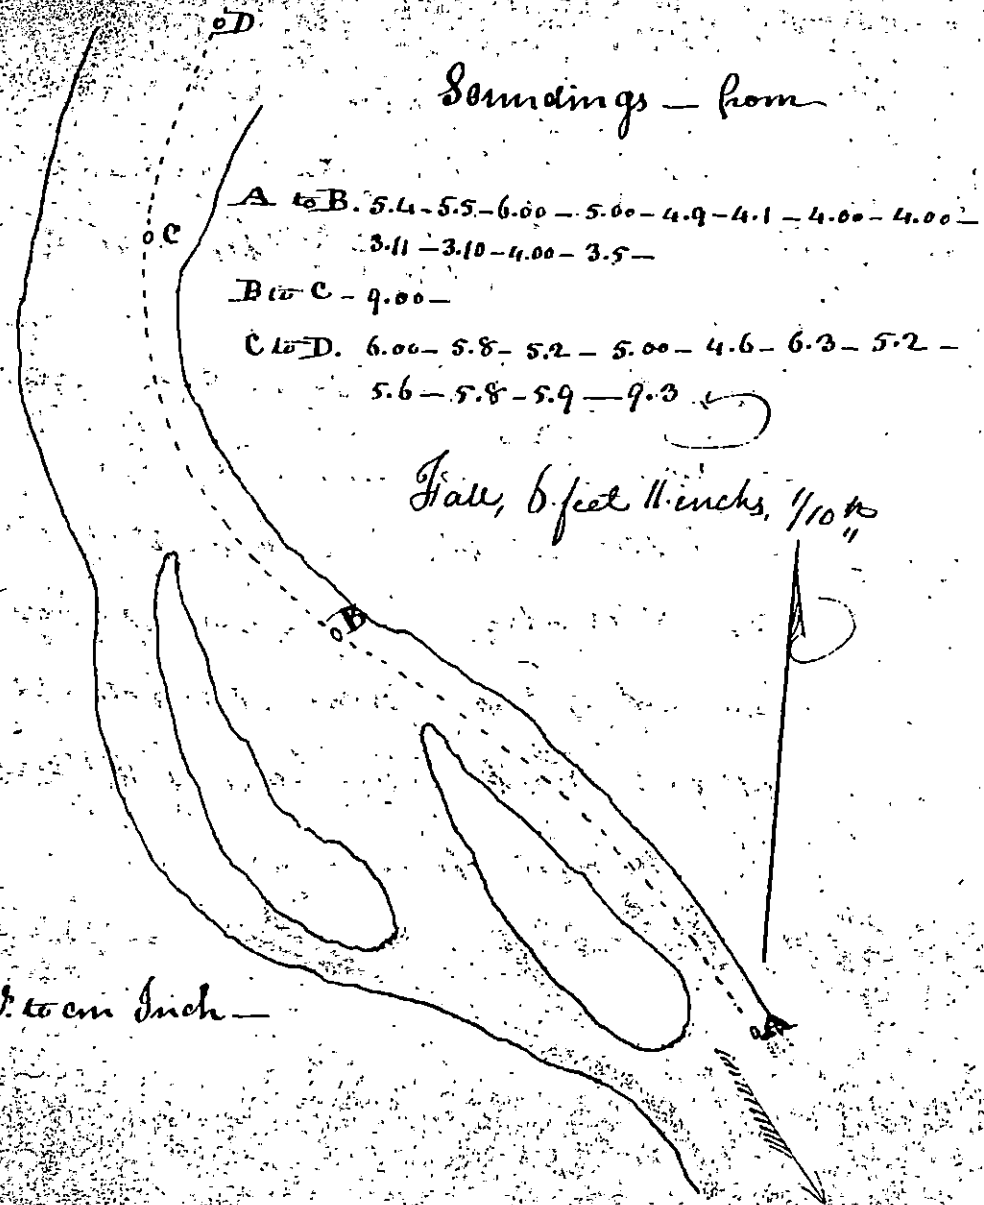 D
Soundings — from
A to B. 5.4 - 5.5 - 6.00 - 5.00 - 4.9 - 4.1 - 4.00 - 4.00 -
3.11 - 3.10 - 4.00 - 3.5 -
C
B to C - 9.00 -
C to D. 6.00 - 5.8 - 5.2 - 5.00 - 4.6 - 6.3 - 5.2 -
5.6 - 5.8 - 5.9 - 9.3
Fall, 6 feet 11 inchs, 1/10th "
B
to an Inch —
A